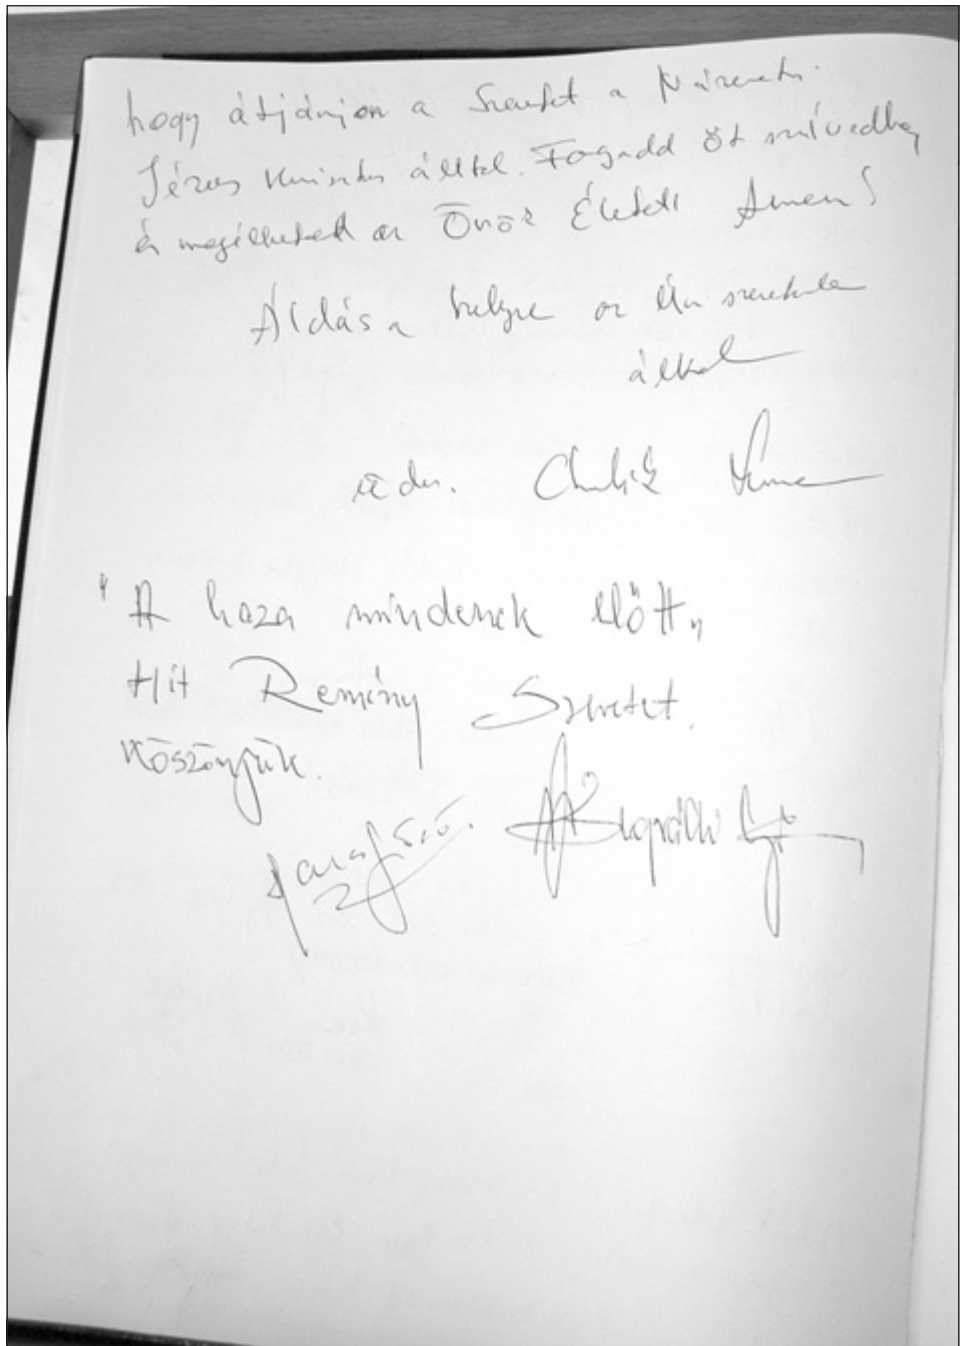 hogy átjárjon a Szeretet a Názereti
Jézus Krisztus álltal. Fogadd Őt szívedbe,
és megélheted az Örök Életet Ámen!
Áldás a helyre az Úr szeretete
által
"A haza mindenek előtt"
Hit Remény Szeretet.
Köszönjük.